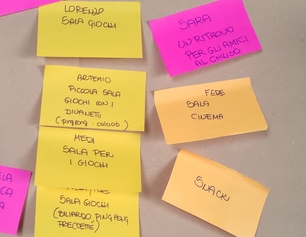 LORENZO
SALA GIOCHI
ARTEMIO
PICCOLA SALA
GIOCHI CON I
DIVANETTI
MEDI
SALA PER
I GIOCHI
SALA GIOCHI
(BILIARDO, PING PONG
FRECCETTE)
SARA
UN RITROVO
PER GLI AMICI
AL CHIUSO
FEDE
SALA
CINEMA
SNACK